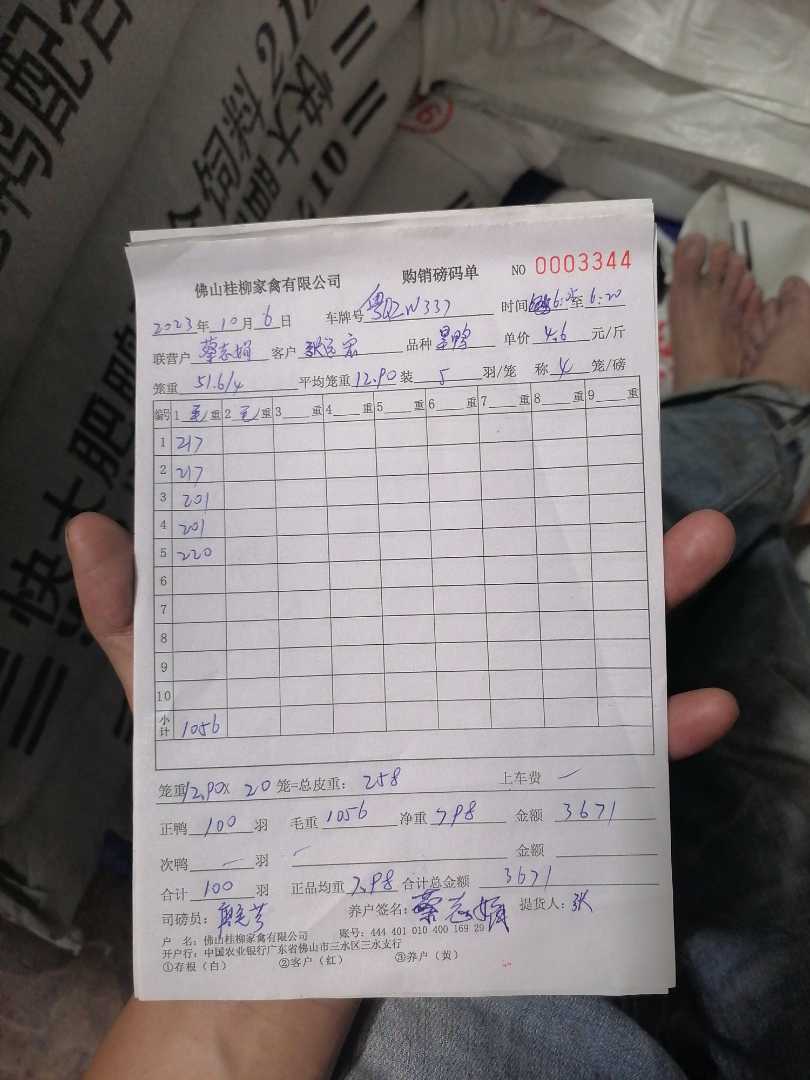 鸭配合
21
快大肥
三
710
三 快大肥鸭
佛山桂柳家禽有限公司 购销磅码单 NO 0003344
2023年10月6日 车牌号 粤QZW337 时间 6:05至6:20
联营户 蔡志娟 客户 品种 单价 4.6 元/斤
笼重 51.6/4 平均笼重12.90装 5 羽/笼 称 4 笼/磅
编号 1 毛 重 2 毛 重 3 重 4 重 5 重 6 重 7 重 8 重 9 重
1 217
2 217
3 201
4 201
5 220
6
7
8
9
10
小计 1056
笼重12.90X 20 笼=总皮重: 258 上车费 一
正鸭 100 羽 毛重 1056 净重 798 金额 3671
次鸭 一 羽 一 金额
合计 100 羽 正品均重 7.98 合计总金额 3671
司磅员: 养户签名: 蔡志娟 提货人: 张
户 名: 佛山桂柳家禽有限公司 账号: 444 401 010 400 169 20
开户行: 中国农业银行广东省佛山市三水区三水支行
①存根(白) ②客户(红) ③养户(黄)